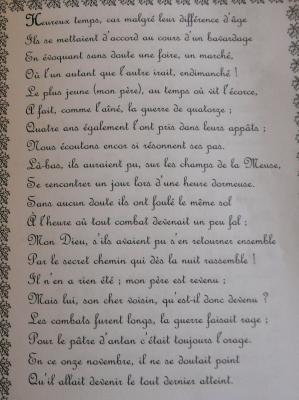 Heureux temps, car malgré leur différence d'âge
Ils se mettaient d'accord au cours d'un bavardage
En évoquant sans doute une foire, un marché,
Où l'un autant que l'autre irait, endimanché !
Le plus jeune (mon père), au temps où vit l'écorce,
A fait, comme l'aîné, la guerre de quatorze ;
Quatre ans également l'ont pris dans leurs appâts ;
Nous écoutons encor si résonnent ses pas.
Là-bas, ils auraient pu, sur les champs de la Meuse,
Se rencontrer un jour lors d'une heure dormeuse.
Sans aucun doute ils ont foulé le même sol
À l'heure où tout combat devenait un peu fol ;
Mon Dieu, s'ils avaient pu s'en retourner ensemble
Par le secret chemin qui dès la nuit rassemble !
Il n'en a rien été ; mon père est revenu ;
Mais lui, son cher voisin, qu'est-il donc devenu ?
Les combats furent longs, la guerre faisait rage ;
Pour le pâtre d'antan c'était toujours l'orage.
En ce onze novembre, il ne se doutait point
Qu'il allait devenir le tout dernier atteint.